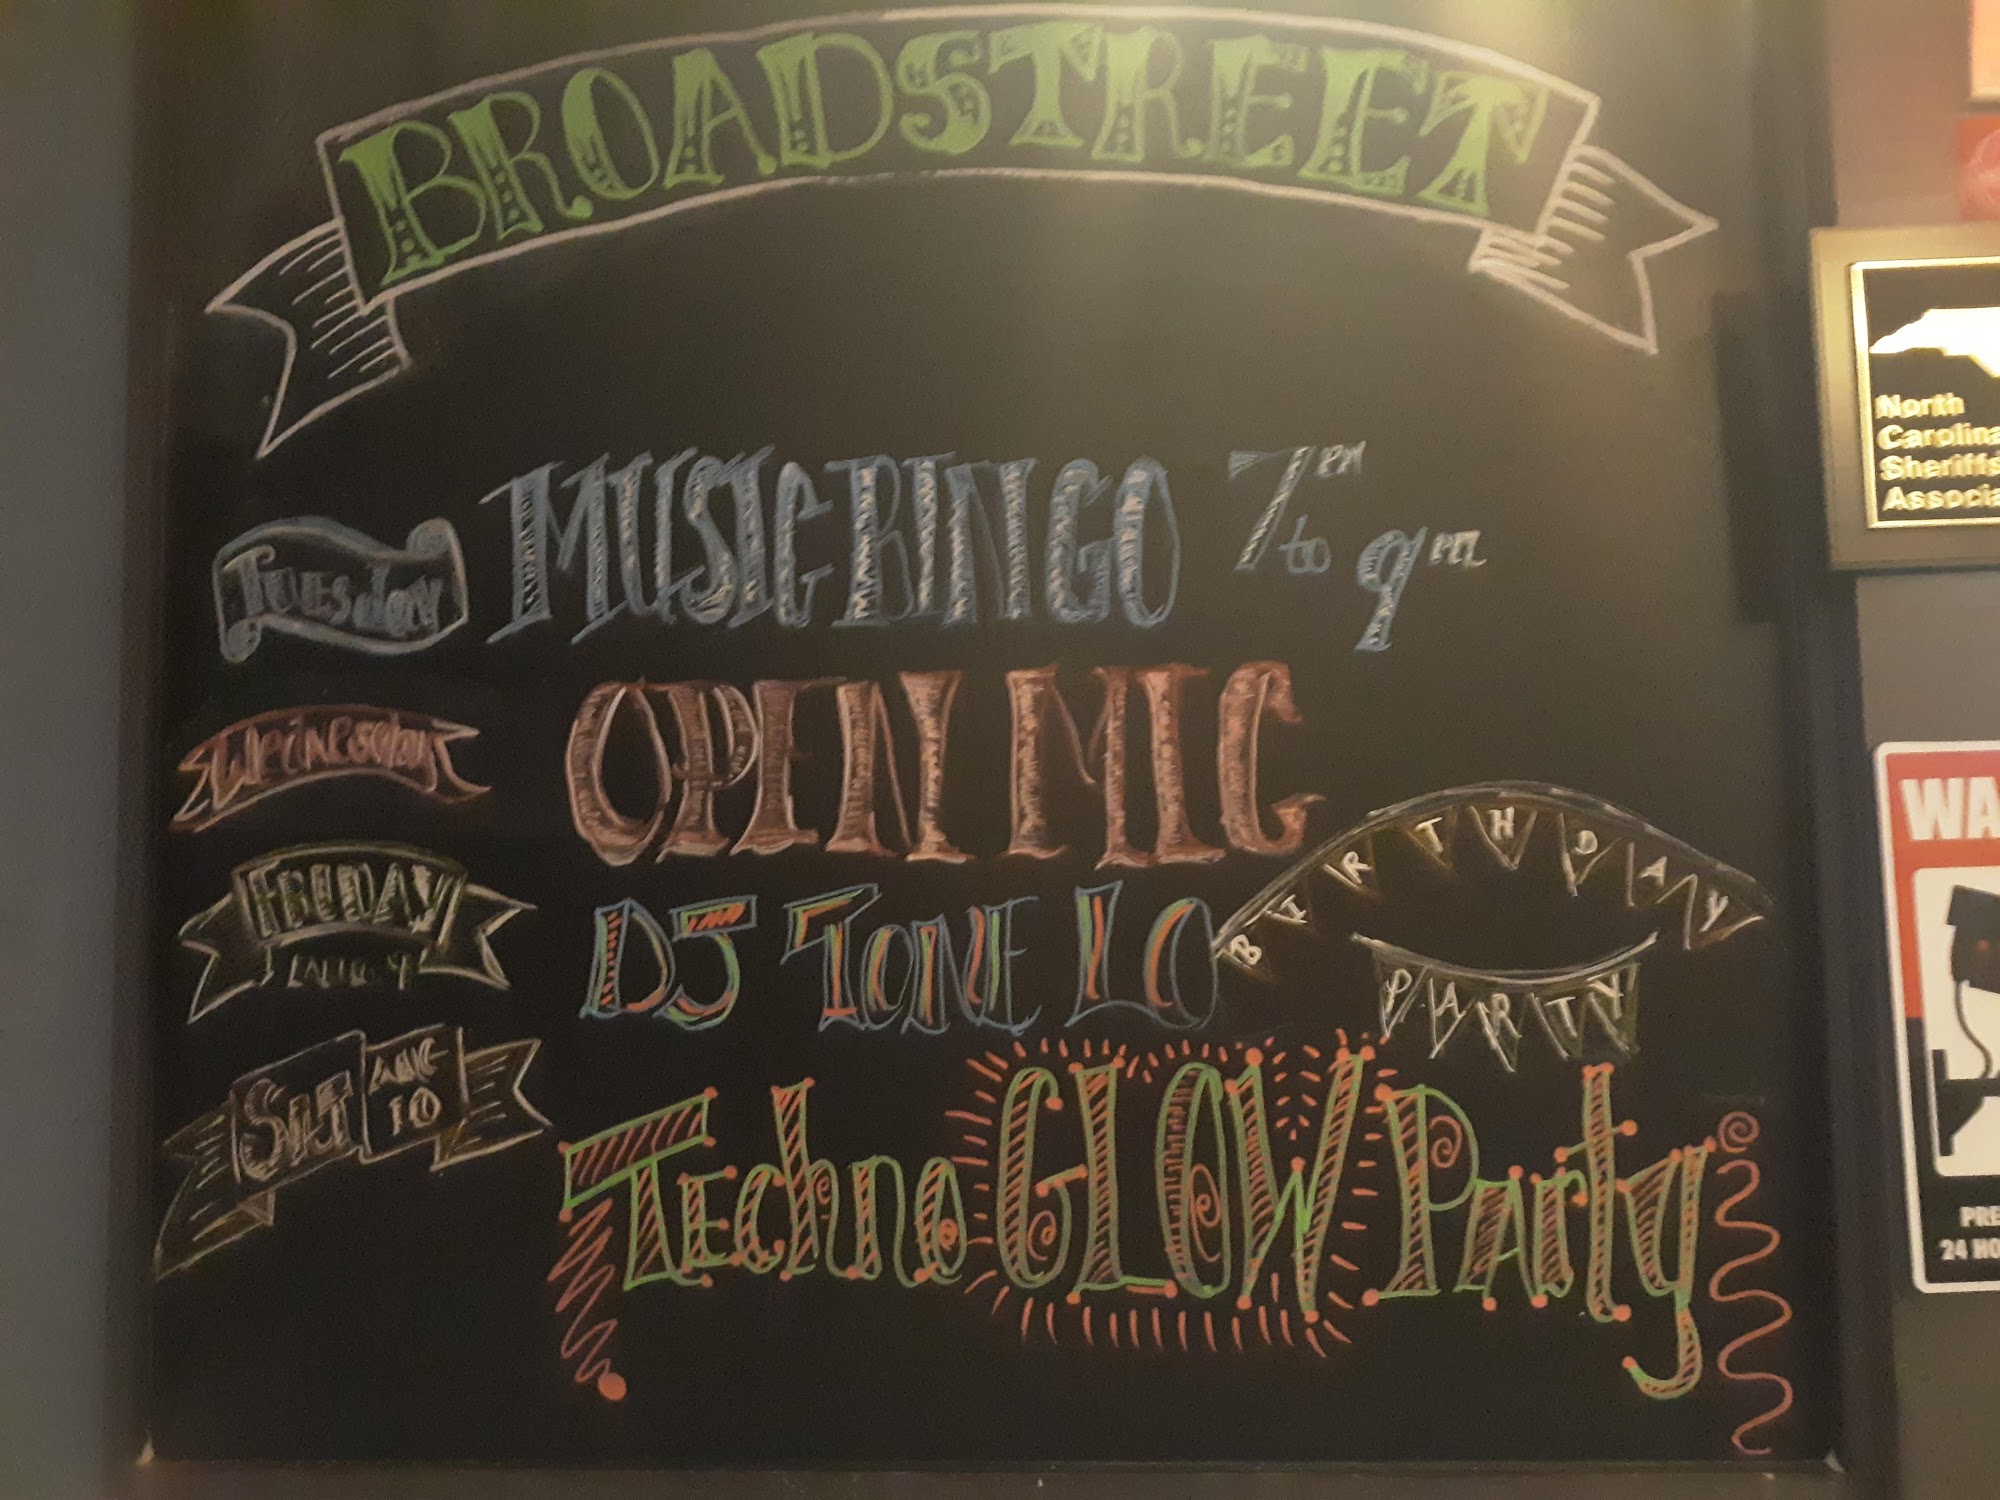 BROADSTREET
Tuesday MUSIC BINGO 7PM to 9PM
Wednesday OPEN MIC
FRIDAY AUG. 9 DJ TONE LO BIRTHDAY PARTY
SAT AUG 10 Techno GLOW Party
North
Carolina
Sheriffs
Associa
WA
PRE
24 HO